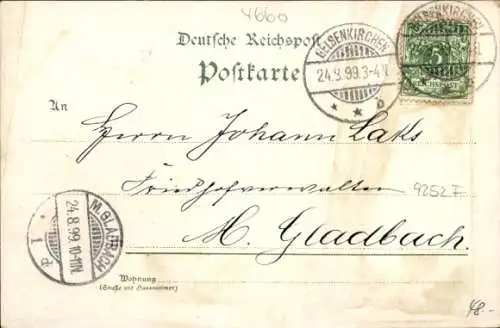 4660
Deutsche Reichspost
Postkarte
GELSENKIRCHEN
24.8.99.3-4N.
* * b
GELSENKIRCHEN
5
REICHSPOST
An
Herrn Johann Laks
Friedhofverwalter
9252 F
M. Gladbach.
M.GLADBACH
24.8.99.10-11N.
* 1 d
Wohnung
(Straße und Hausnummer)
48.-